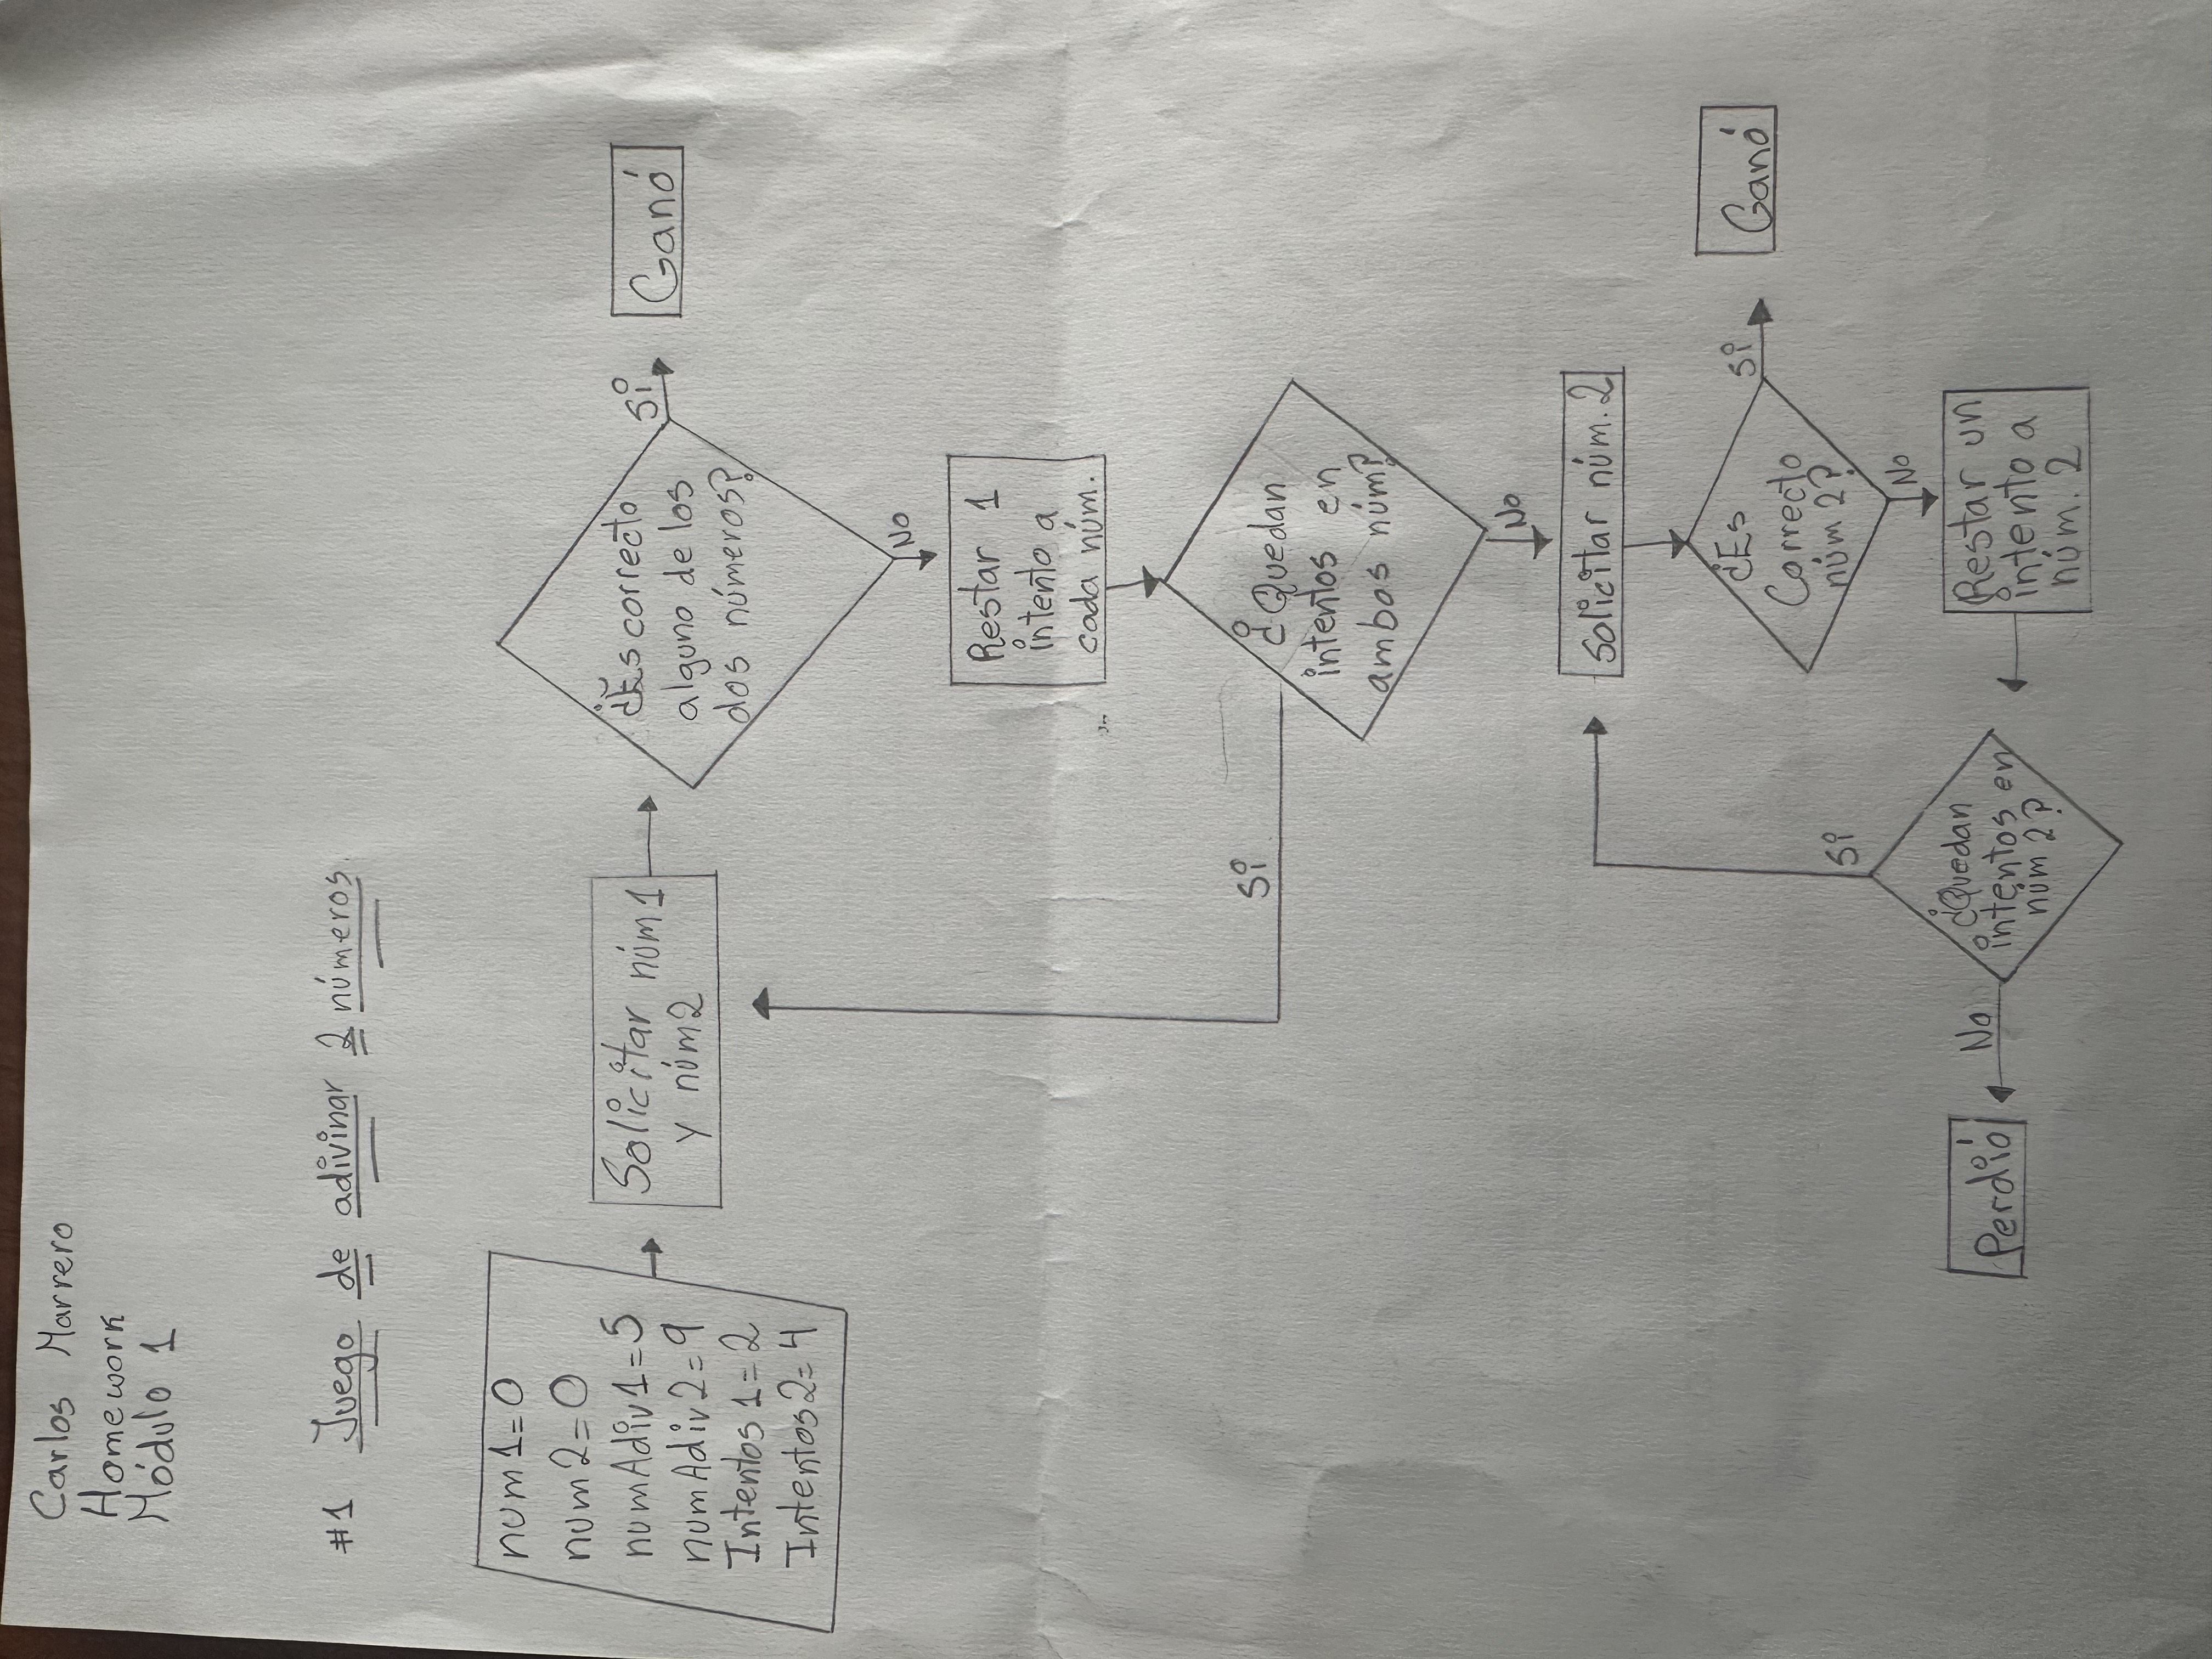 Carlos Marrero
Homework
Módulo 1
#1 Juego de adivinar 2 números.
num1=0
num2=0
numAdiv1=5
numAdiv2=9
Intentos 1=2
Intentos2=4
Solicitar núm1
y núm2
¿Es correcto
alguno de los
dos números?
Si
Ganó
No
Restar 1
intento a
cada núm.
¿Quedan
intentos en
ambos núm?
Si
No
Solicitar núm. 2
¿Es
Correcto
núm 2?
Si
Ganó
No
Restar un
intento a
núm. 2
¿Quedan
intentos en
núm 2?
Si
No
Perdió